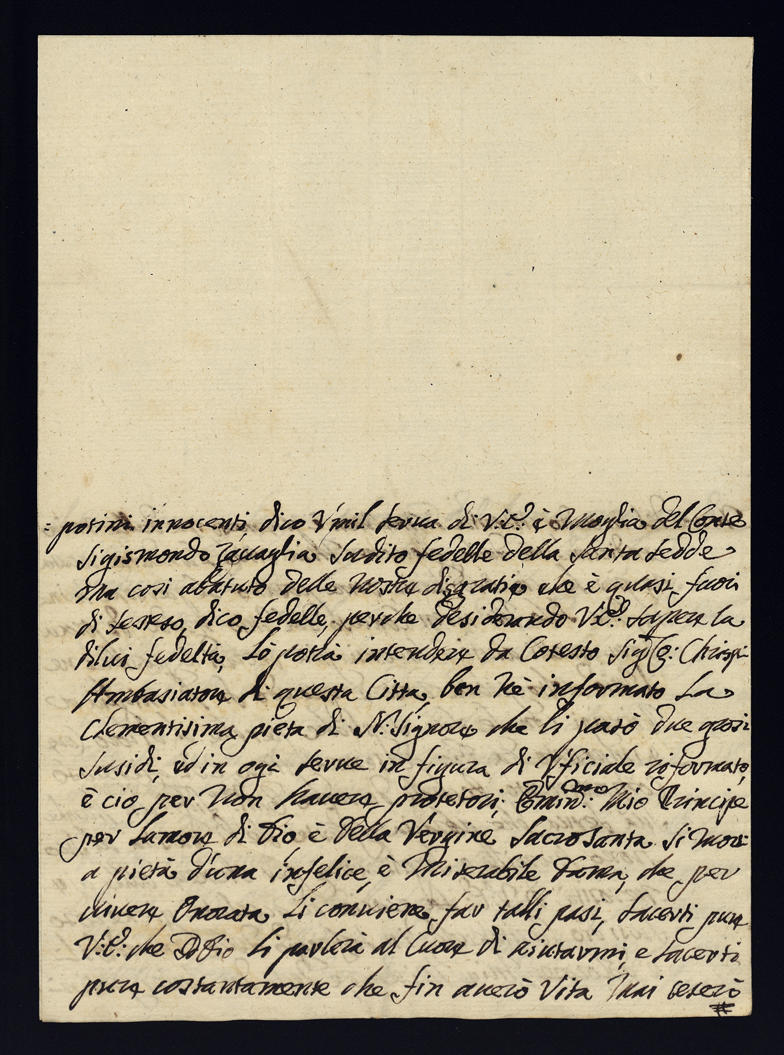 = potini innocenti dico Vmil serua di V:E: è Moglia del Conte
Sigismondo Zauaglia Sudito fedelle della Santa Sedde
ma cosi abatuto delle nostre disgratie che è quasi fuori
di se steso, dico fedelle, perche desiderando V:E: sapere la
dilui fedeltà, Lo potrà intendere da Cotesto Sig:
Ambasiatore di questa Citta, ben n'è informato La
Clementisima pieta di N: Signore che li pasò due grosi
Susidi, ed in ogi serue in figura di Vficiale riformato,
è cio per non hauere protetori, Emin:mo Mio Principe
per Lamore di Dio, è della Vergine Sacrosanta Si Moui
a pietà d'una infelice, è Miserabile Dama, che per
uiuere Onorata Li conuiene far talli pasi, Sacerti pure
V:E: che Iddio Li parlerà al Cuore di aiutarmi, e Sacerti
pure costantamente che fin auerò Vita Maiceserò